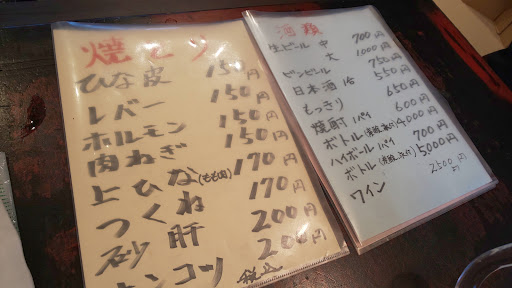 焼とり
ひな皮 150円
レバー 150円
ホルモン 150円
肉ねぎ 150円
上ひな(もも肉) 170円
つくね 170円
砂肝 200円
ナンコツ 200円
税込
酒類
生ビール 中 700円
大 1,000円
ビンビール 750円
日本酒 1合 550円
もっきり 650円
焼酎 1パイ 600円
ボトル 4,000円
ハイボール 1パイ 700円
ボトル 5,000円
ワイン 2500円